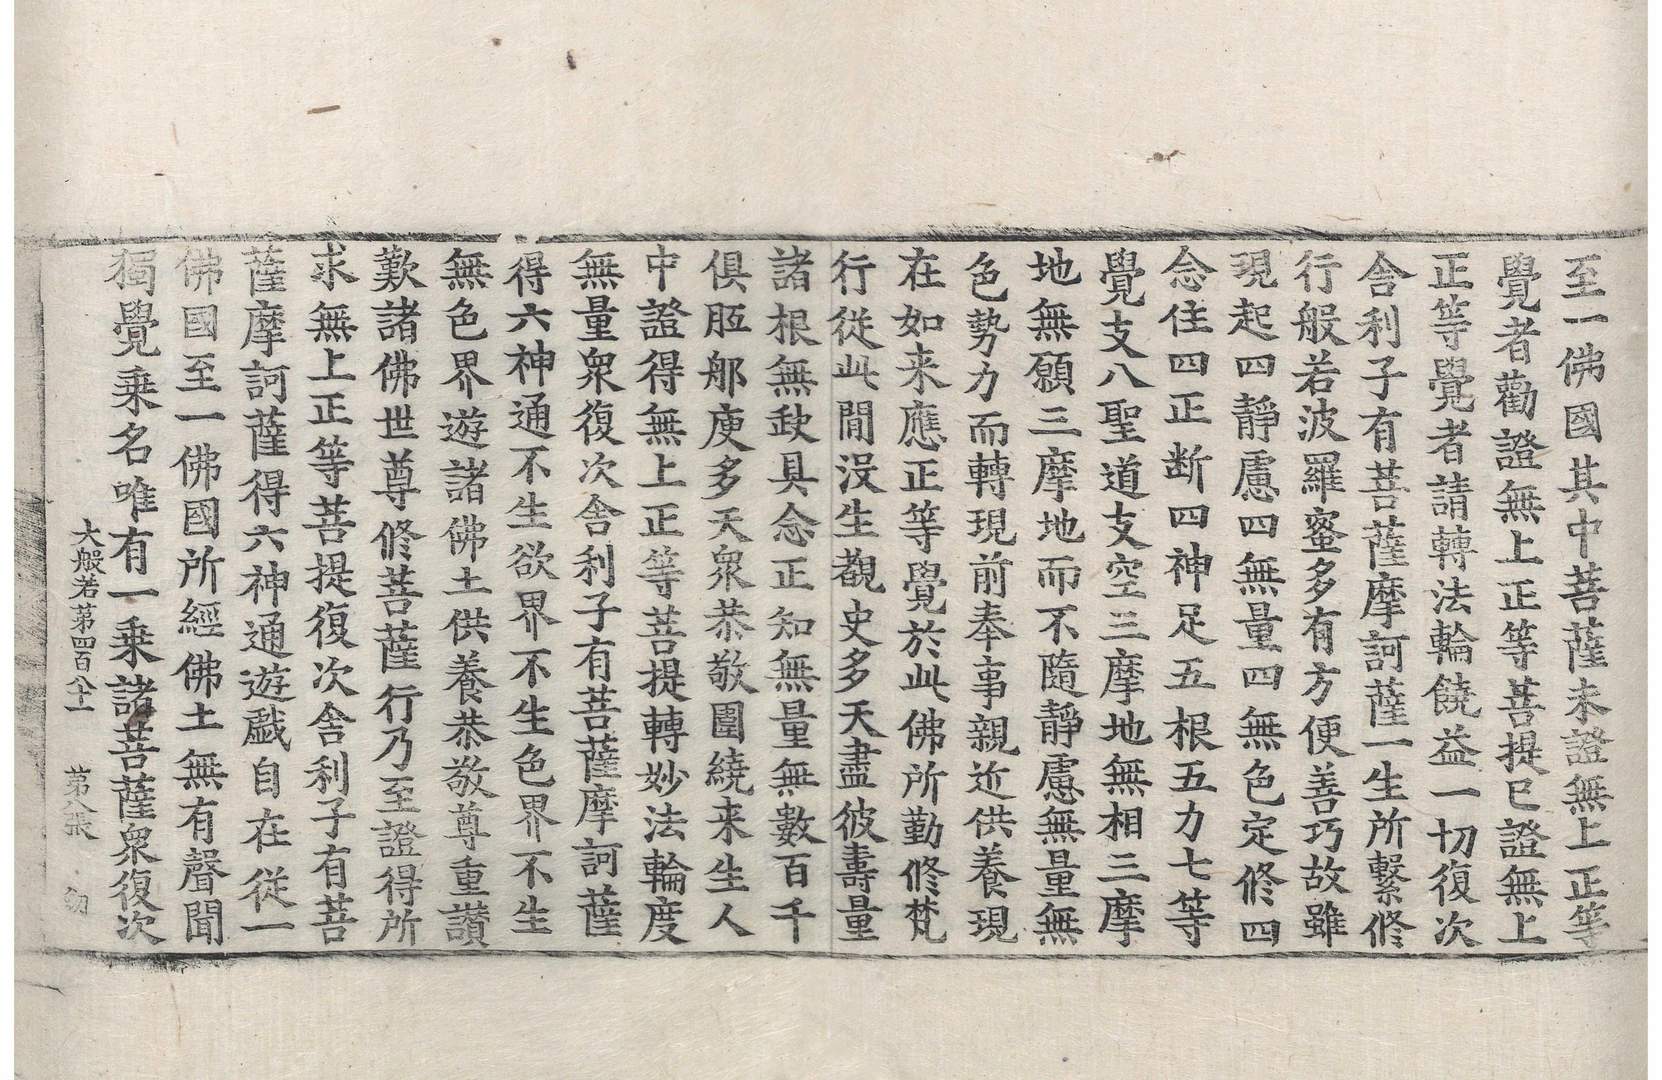 至一佛國其中菩薩未證無上正等
覺者勸證無上正等菩提已證無上
正等覺者請轉法輪饒益一切復次
舍利子有菩薩摩訶薩一生所繫修
行般若波羅蜜多有方便善巧故雖
現起四靜慮四無量四無色定修四
念住四正断四神足五根五力七等
覺支八聖道支空三摩地無相三摩
地無願三摩地而不隨靜慮無量無
色勢力而轉現前奉事親近供養現
在如来應正等覺於此佛所勤修梵
行從此間沒生覩史多天盡彼壽量
諸根無缺具念正知無量無數百千
俱胝那庾多天衆恭敬圍繞来生人
中證得無上正等菩提轉妙法輪度
無量衆復次舍利子有菩薩摩訶薩
得六神通不生欲界不生色界不生
無色界遊諸佛土供養恭敬尊重讃
歎諸佛世尊修菩薩行乃至證得所
求無上正等菩提復次舍利子有菩
薩摩訶薩得六神通遊戱自在從一
佛國至一佛國所經佛土無有聲聞
獨覺乘名唯有一乘諸菩薩衆復次
大般若第四百八十一 第八張